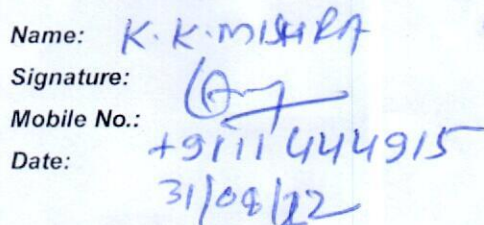 Name: K. K. MISHRA
Signature:
Mobile No.: +9111444915
Date: 31/08/22